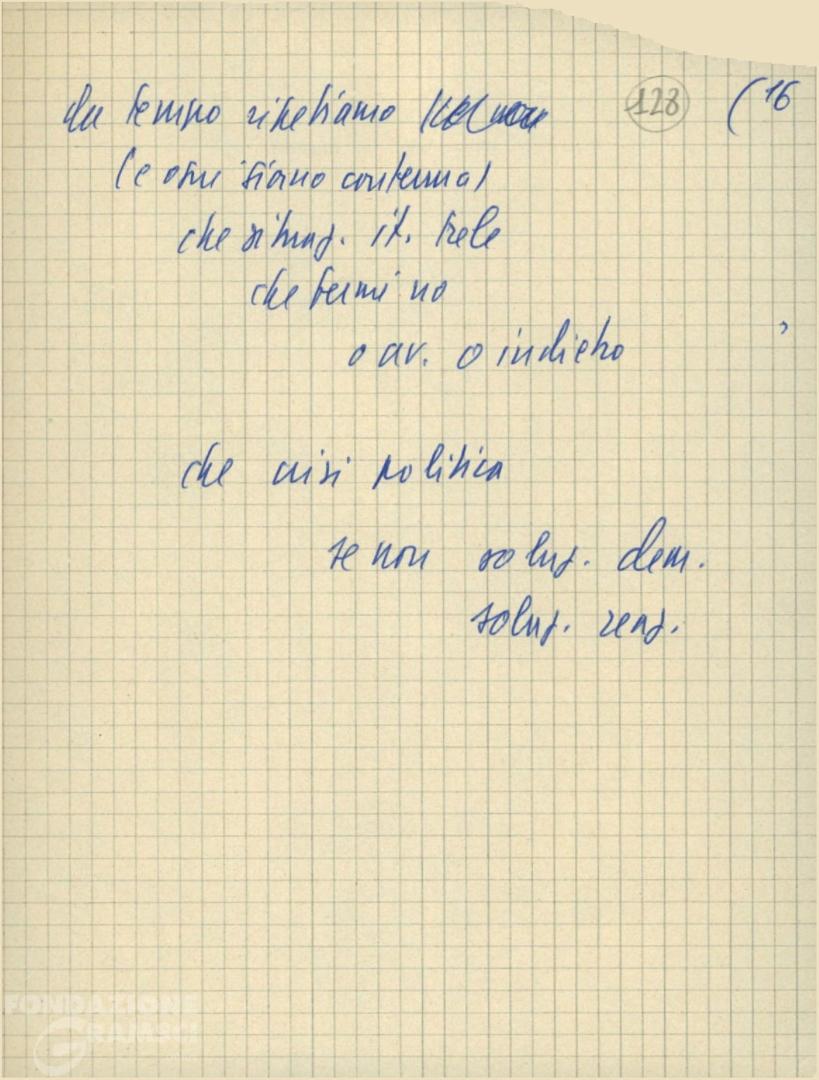 da tempo ripetiamo 128 (16
(e ogni giorno conferma)
che situaz. it. tale
che fermi no
o av. o indietro
che crisi politica
se non soluz. dem.
soluz. reaz.
FONDAZIONE
GRAMSCI